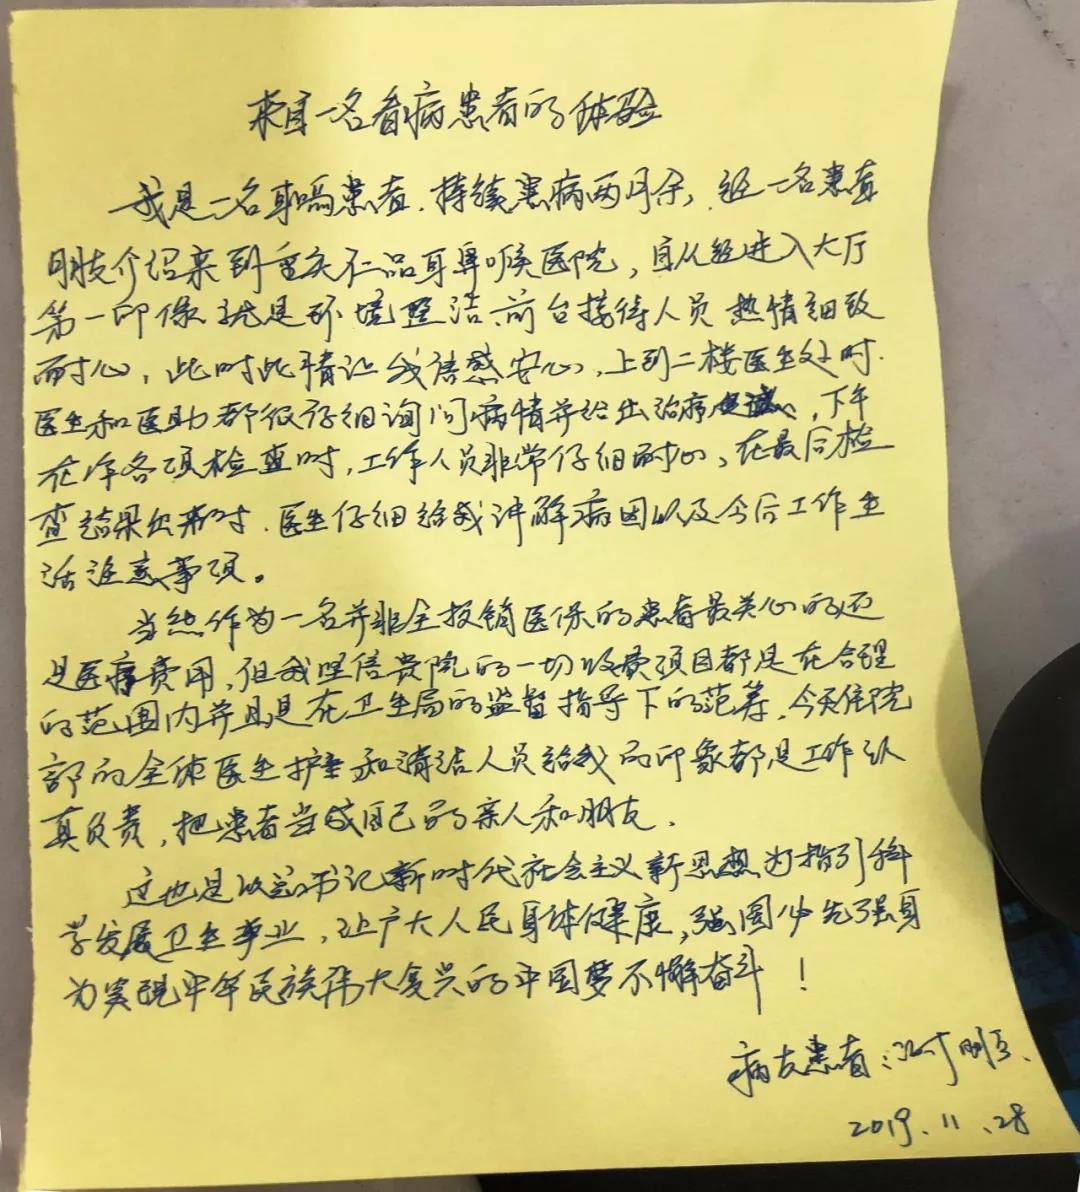 来自一名看病患者的体验
我是一名耳鸣患者，持续患病两月余，经一名患者
朋友介绍来到重庆仁品耳鼻喉医院，自从经进入大厅
第一印像就是环境整洁、前台接待人员热情细致
耐心，此时此情让我倍感安心，上到二楼医生处时.
医生和医助都很仔细询问病情并给出治疗，下午
在作各项检查时，工作人员非常仔细耐心、在最后检
查结果出来时.医生仔细给我讲解病因以及今后工作生
活注意事项。
当然作为一名并非全报销医保的患者最关心的还
是医疗费用，但我坚信贵院的一切收费项目都是在合理
的范围内并且是在卫生局的监督指导下的范筹，今天住院
部的全体医生护士和清洁人员给我的印象都是工作认
真负责，把患者当成自己的亲人和朋友.
这也是以总书记新时代社会主义新思想为指引科
学发展卫生事业，让广大人民身体健康，强国必先强身
为实现中华民族伟大复兴的中国梦不懈奋斗！
病友患者：明
2019.11.28